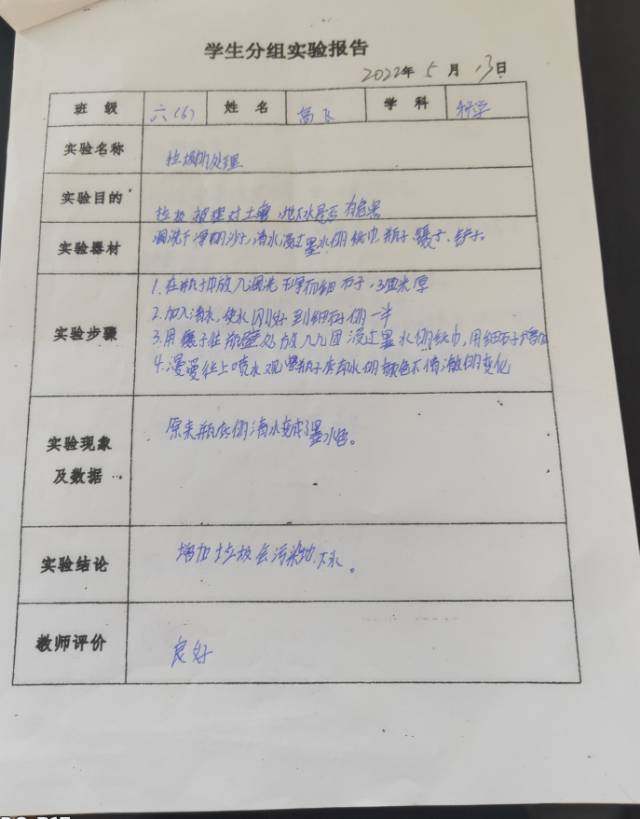 学生分组实验报告
2022年 5 月 13日
班 级 六(6) 姓 名 学 科 科学
实验名称 垃圾的处理
实验目的 垃圾 对土壤,地下水是否有危害
实验器材 洗干净的沙子,清水浸过墨水的纸巾,瓶子、镊子、铲子。
实验步骤
1.在瓶中放入 洗干净的细石子,3厘米厚
2.加入清水,使水刚好到细石子的一半
3.用镊子在瓶壁处放入几团浸过墨水的纸巾,用细石子
4.漫漫往上喷水观 瓶子底部水的颜色
实验现象
及数据
原来瓶底的清水变成了墨水色。
实验结论 垃圾会污染地下水。
教师评价 良好